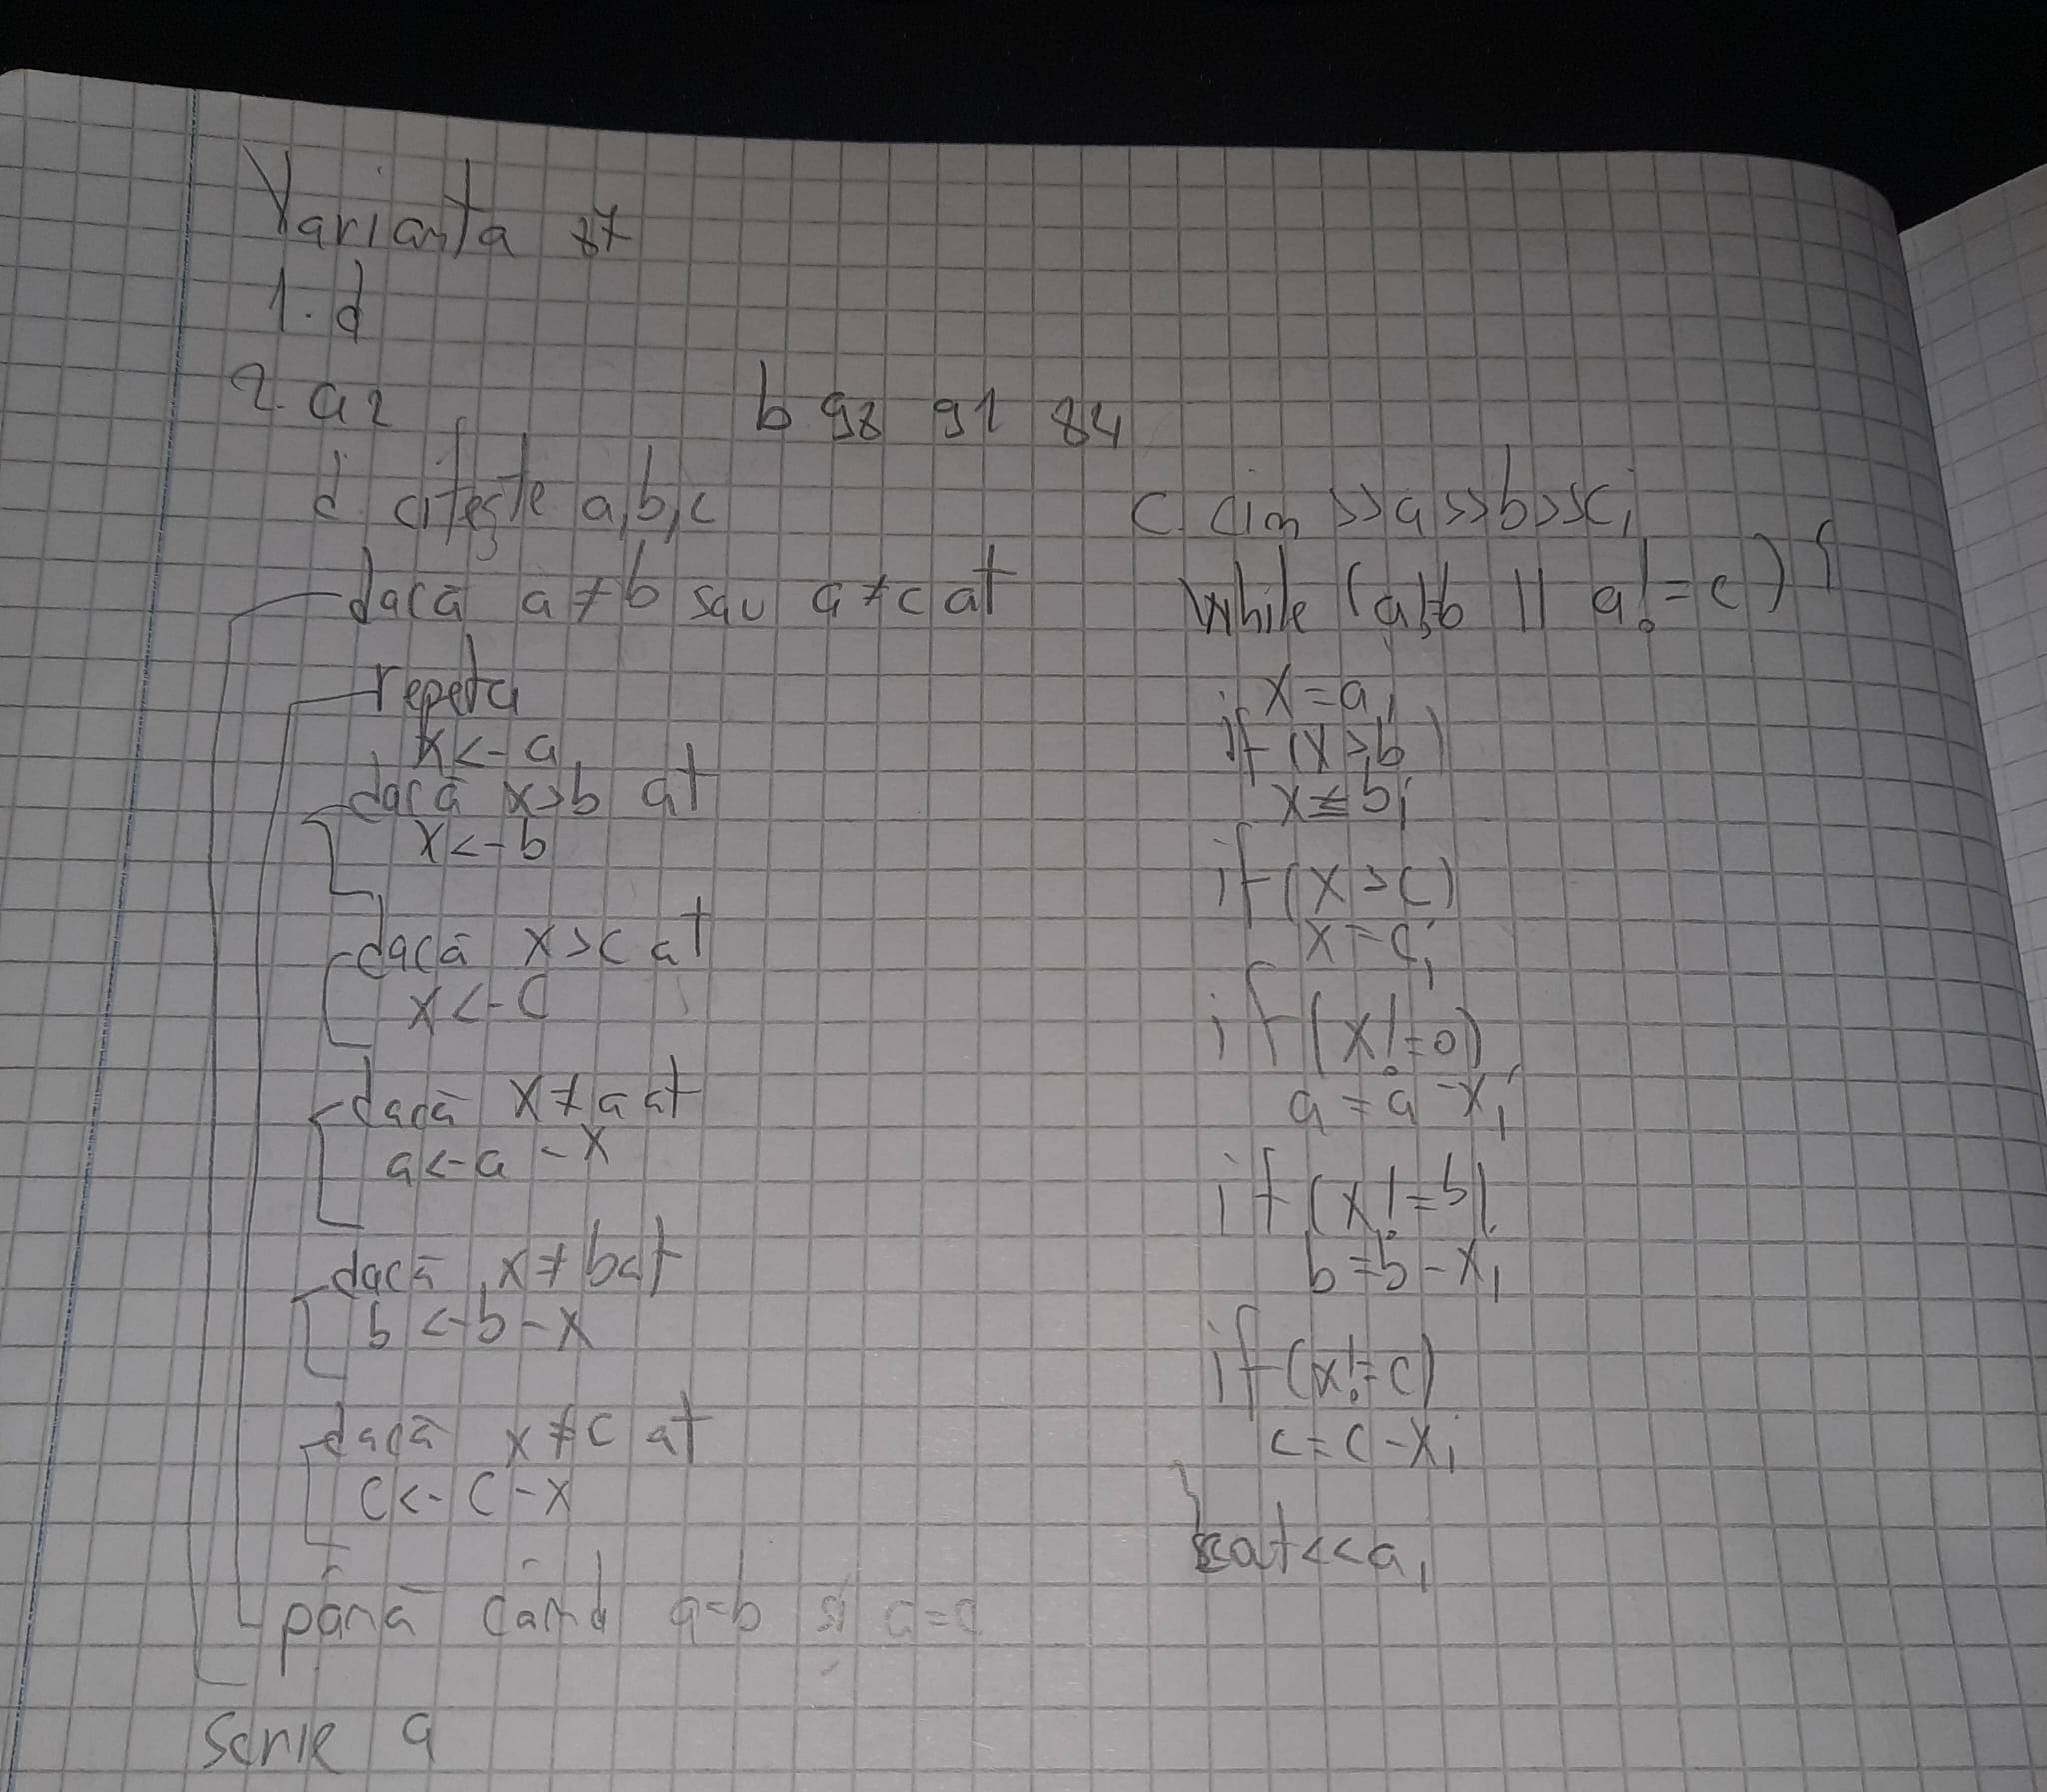 Varianta 87
1. d
2. a 2
b 98 91 84
d. citește a,b,c
dacă a≠b sau a≠c at
repeta
x<-a
dacă x>b at
x<-b
dacă x>c at
x<-c
dacă x≠a at
a<-a-x
dacă x≠b at
b<-b-x
dacă x≠c at
c<-c-x
până când a=b și a=c
scrie a
c. cin >>a>>b>>c;
while (a!=b || a!=c) {
x=a;
if (x>b)
x=b;
if (x>c)
x=c;
if (x!=0)
a=a-x;
if (x!=b)
b=b-x;
if (x!=c)
c=c-x;
}
cout<<a;